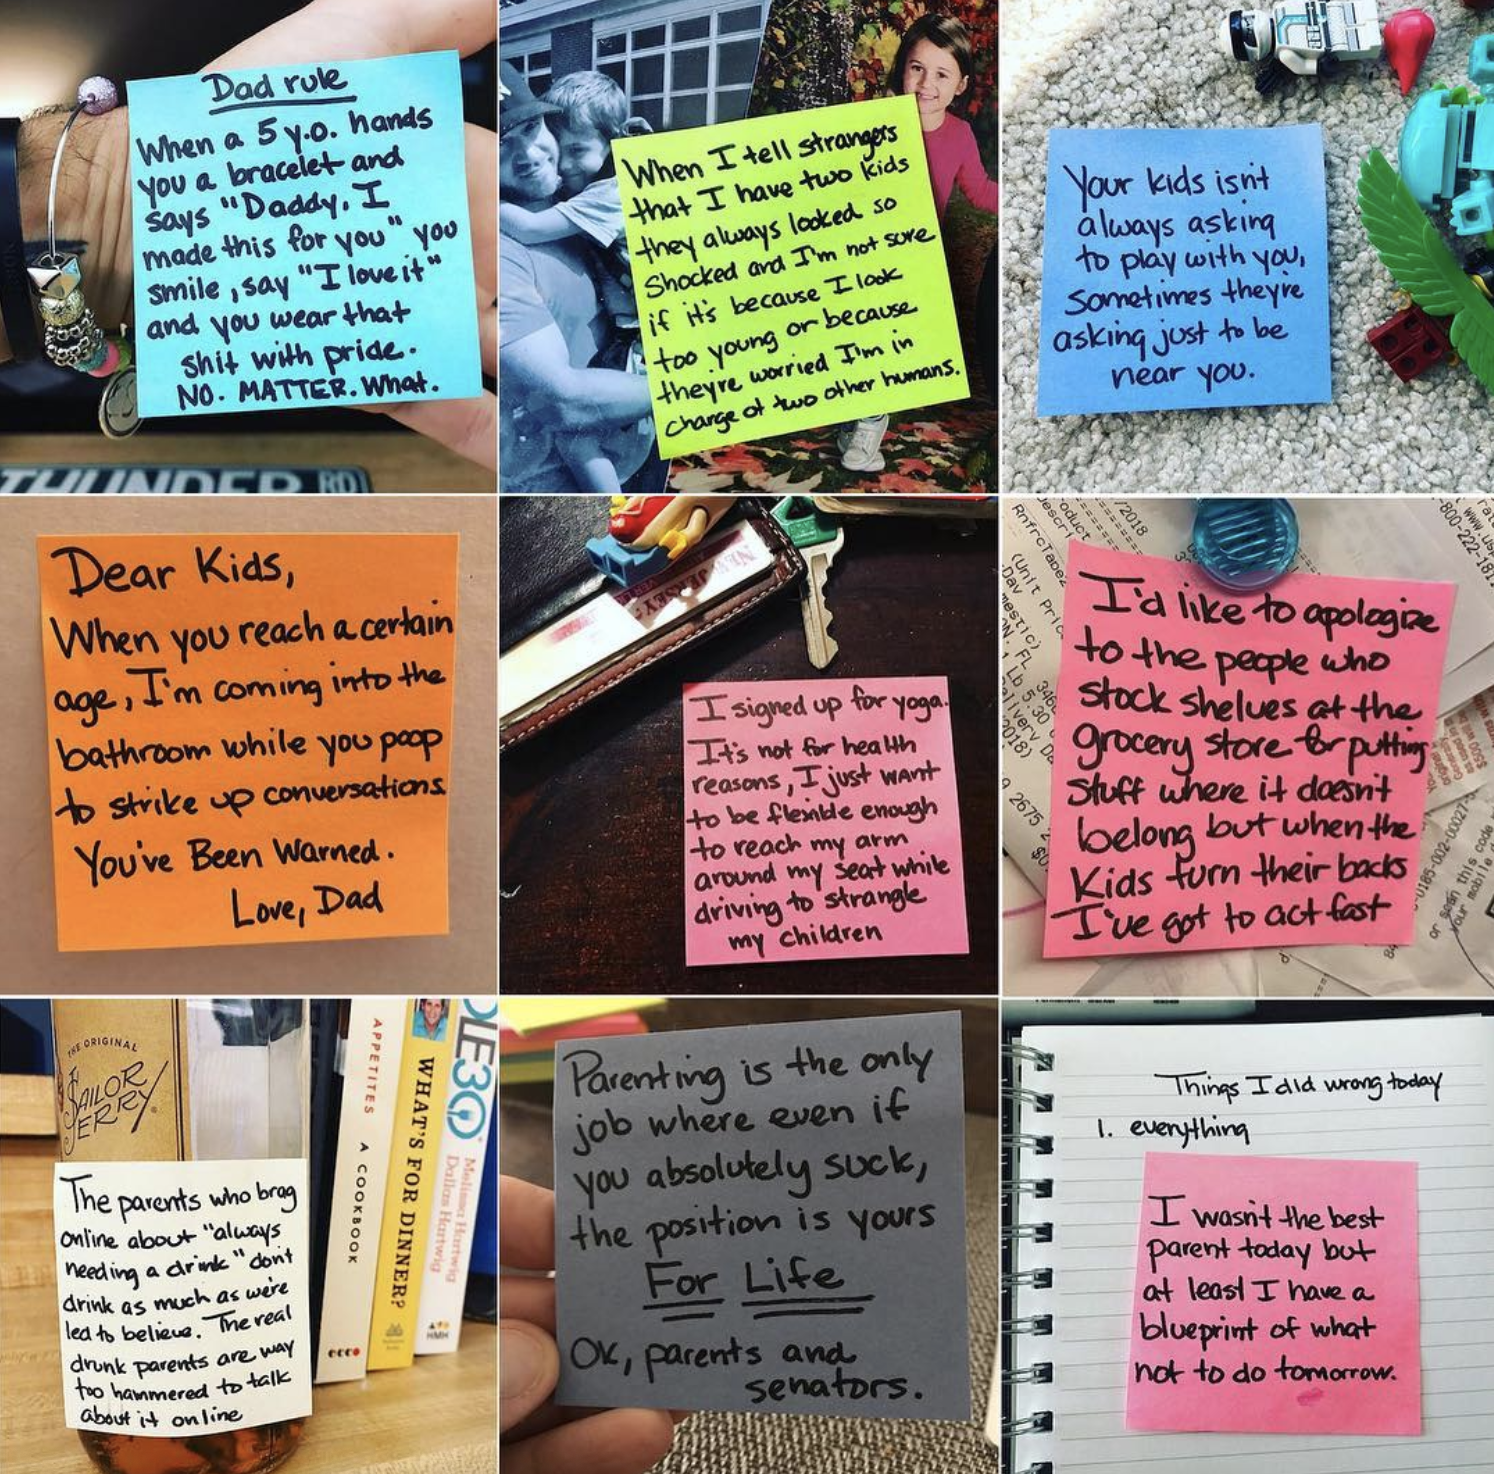 Dad rule
When a 5 y.o. hands
you a bracelet and
says "Daddy, I
made this for you" you
smile, say "I love it"
and you wear that
shit with pride.
NO. MATTER. What.
THUNDER RD
When I tell strangers
that I have two kids
they always looked so
shocked and I'm not sure
if it's because I look
too young or because
they're worried I'm in
charge of two other humans.
Your kids isn't
always asking
to play with you,
sometimes they're
asking just to be
near you.
Dear Kids,
When you reach a certain
age, I'm coming into the
bathroom while you poop
to strike up conversations.
You've Been Warned.
Love, Dad
NEW JERSEY
I signed up for yoga.
It's not for health
reasons, I just want
to be flexible enough
to reach my arm
around my seat while
driving to strangle
my children
I'd like to apologize
to the people who
stock shelves at the
grocery store for putting
stuff where it doesn't
belong but when the
Kids turn their backs
I've got to act fast
THE ORIGINAL
SAILOR
JERRY
The parents who brag
online about "always
needing a drink" don't
drink as much as we're
led to believe. The real
drunk parents are way
too hammered to talk
about it online
APPETITES A COOKBOOK
WHAT'S FOR DINNER?
OLE30
Melissa Hartwig
Dallas Hartwig
HMH
Parenting is the only
job where even if
you absolutely suck,
the position is yours
For Life
OK, parents and
senators.
Things I did wrong today
1. everything
I wasn't the best
parent today but
at least I have a
blueprint of what
not to do tomorrow.